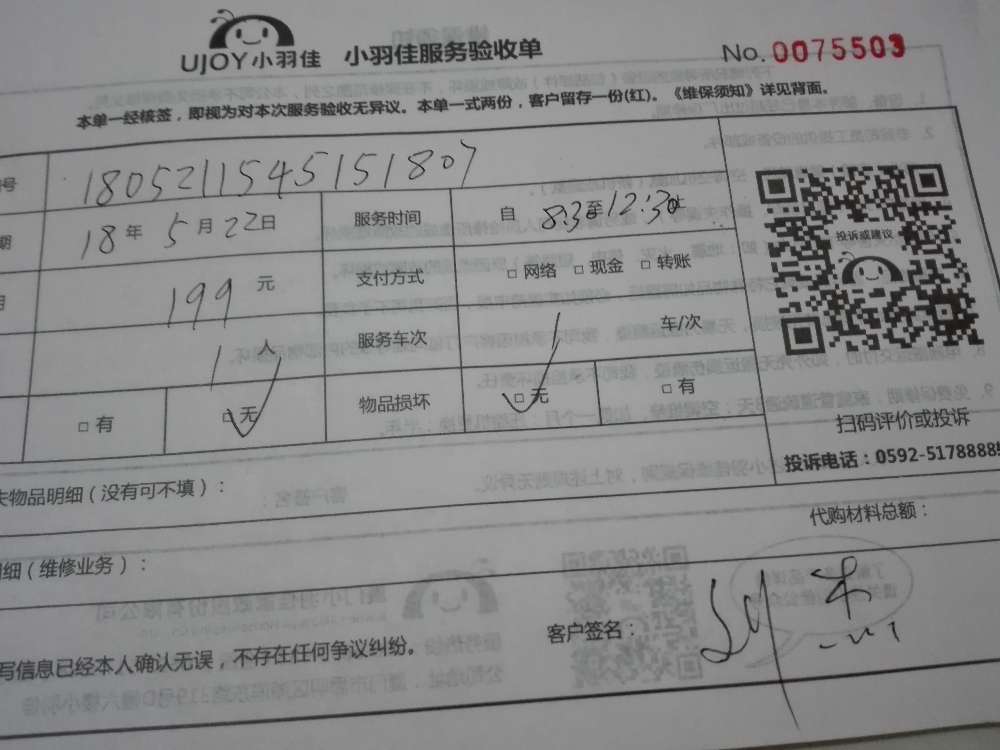 UJOY小羽佳 小羽佳服务验收单 No.0075503
本单一经核签，即视为对本次服务验收无异议。本单一式两份，客户留存一份(红)。《维保须知》详见背面。
号 1805211545151807
期 18年5月22日 服务时间 自8:30至12:30止
199元 支付方式 □网络 □现金 □转账
1人 服务车次 1 车/次
□有 □无 物品损坏 □无 □有
投诉或建议
扫码评价或投诉
投诉电话：0592-5178888
失物品明细（没有可不填）：
代购材料总额：
细（维修业务）：
写信息已经本人确认无误，不存在任何争议纠纷。 客户签名：